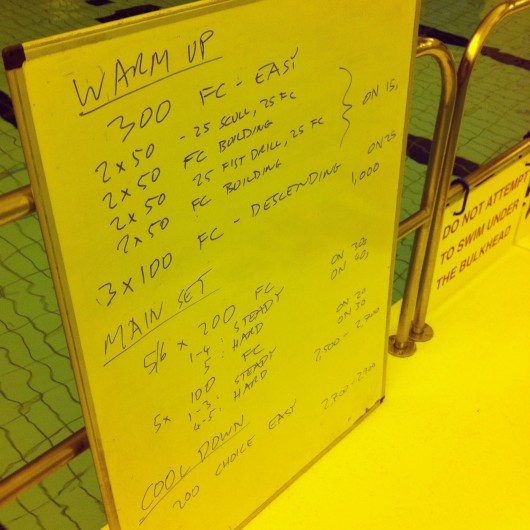 WARM UP
300 FC - EASY
2 x 50 - 25 SCULL, 25 FC
2 x 50 FC BUILDING
2 x 50 25 FIST DRILL, 25 FC
2 x 50 FC BUILDING
ON 15,
3 x 100 FC - DESCENDING ON 25
1,000
MAIN SET
5/6 x 200 FC
1-4: STEADY ON 30,
5: HARD ON 40,
5x 100 FC
1-3: STEADY ON 20
4-5: HARD ON 30
2500 - 2700
COOL DOWN
200 CHOICE EASY
DO NOT ATTEMPT
TO SWIM UNDER
THE BULKHEAD